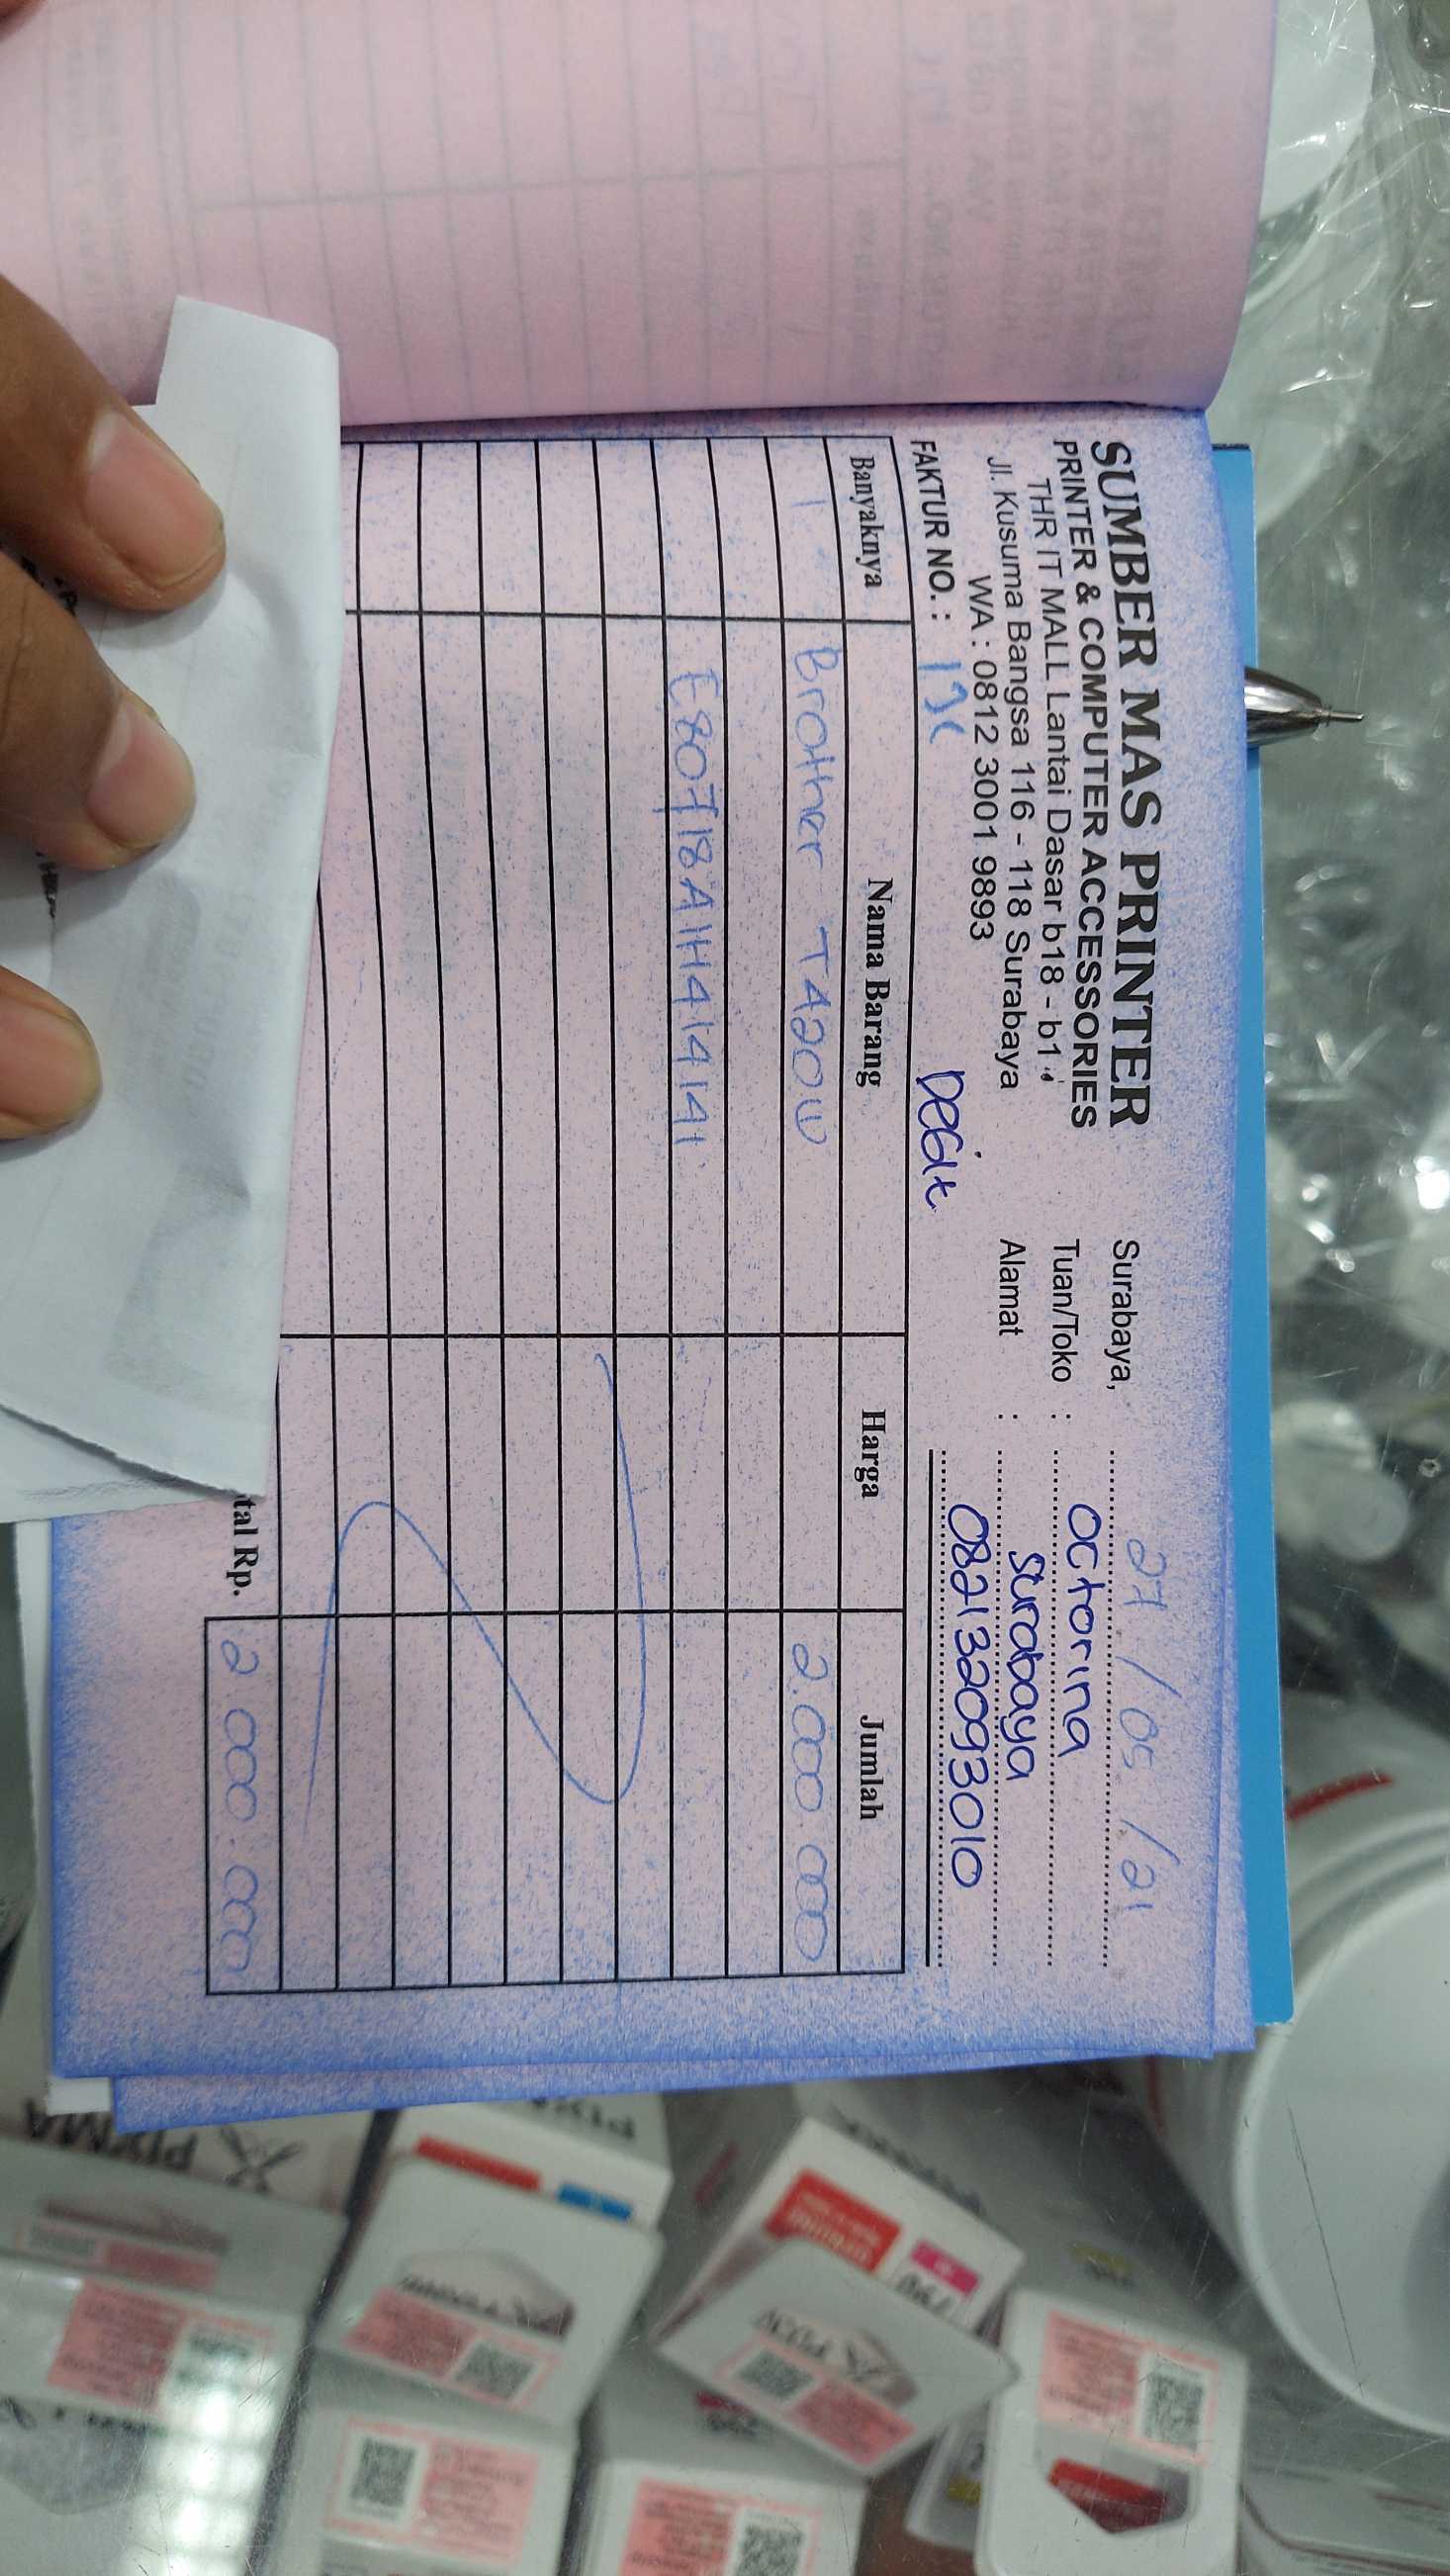 SUMBER MAS PRINTER
PRINTER & COMPUTER ACCESSORIES
THR IT MALL Lantai Dasar b18 - b1
Jl. Kusuma Bangsa 116 - 118 Surabaya
WA : 0812 3001 9893
FAKTUR NO. :
Debit
Surabaya, 27 / 05 / 21
Tuan/Toko : Octorina
Alamat : Surabaya
082132093010
Banyaknya Nama Barang Harga Jumlah
1 Brother T420W 2.000.000
E80718A1H414141
tal Rp. 2.000.000
PIXMA